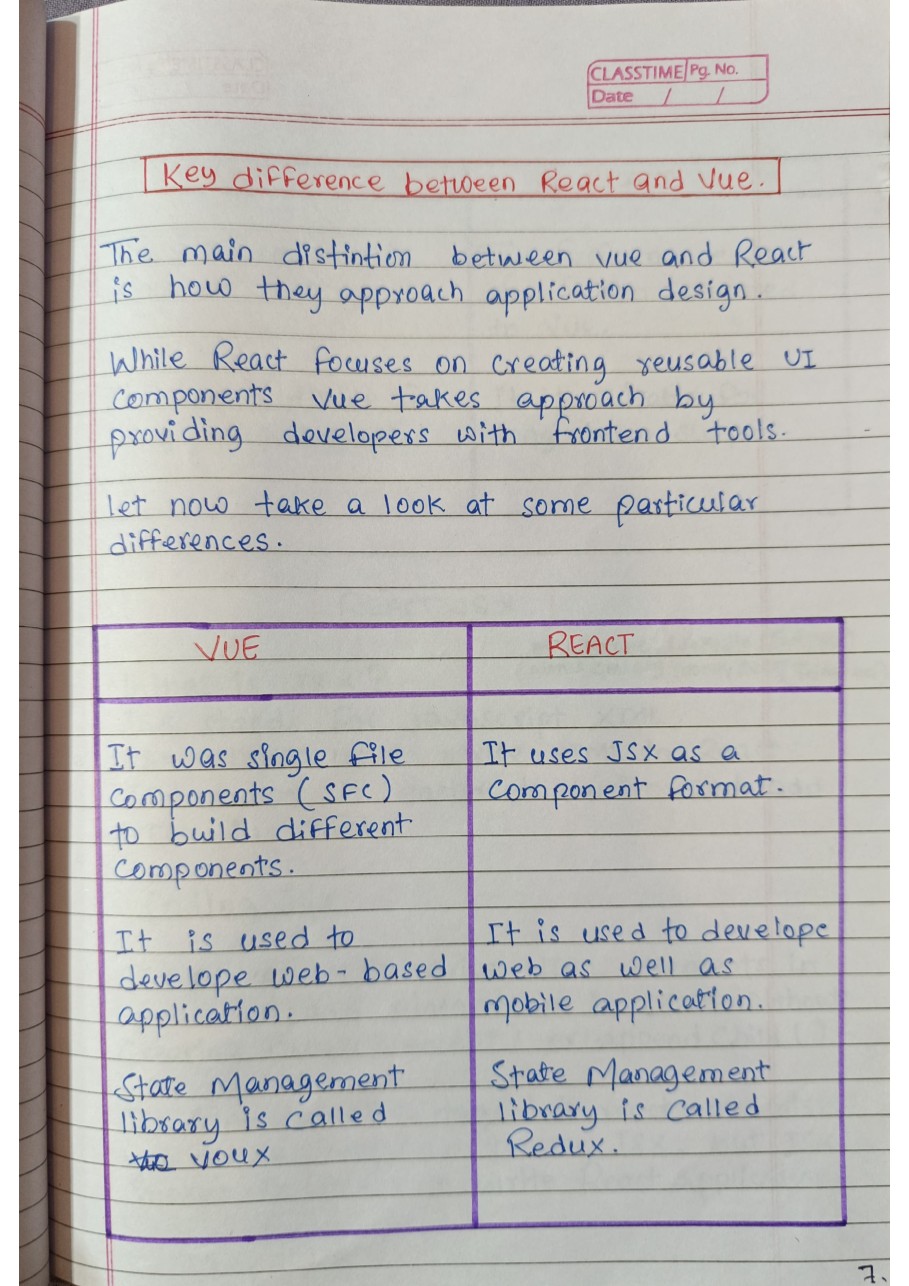 CLASSTIME Pg. No.
Date / /
Key difference between React and Vue.
The main distintion between vue and React
is how they approach application design.
While React focuses on creating reusable UI
components vue takes approach by
providing developers with frontend tools.
let now take a look at some particular
differences.
VUE
REACT
It was single file
components (SFC)
to build different
components.
It uses JSX as a
component format.
It is used to
develope web-based
application.
It is used to develope
web as well as
mobile application.
State Management
library is called
VOUX
State Management
library is called
Redux.
7.